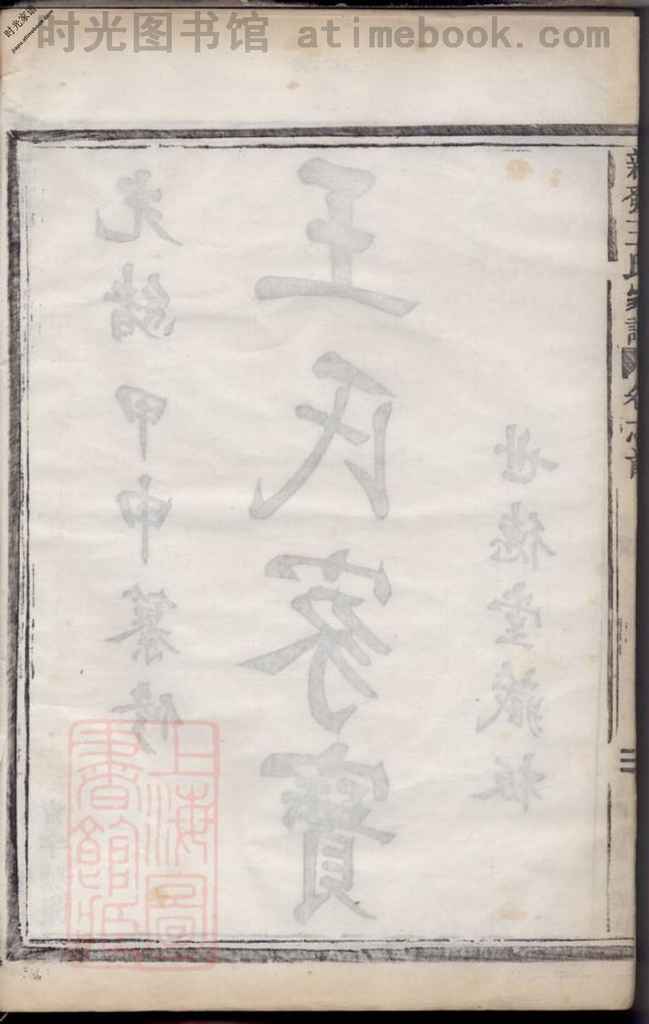 时光图书馆 atimebook.com
时光图书馆
光緒甲申纂修
王氏家寶
世德堂藏板
王氏家譜
卷
上海圖
書館